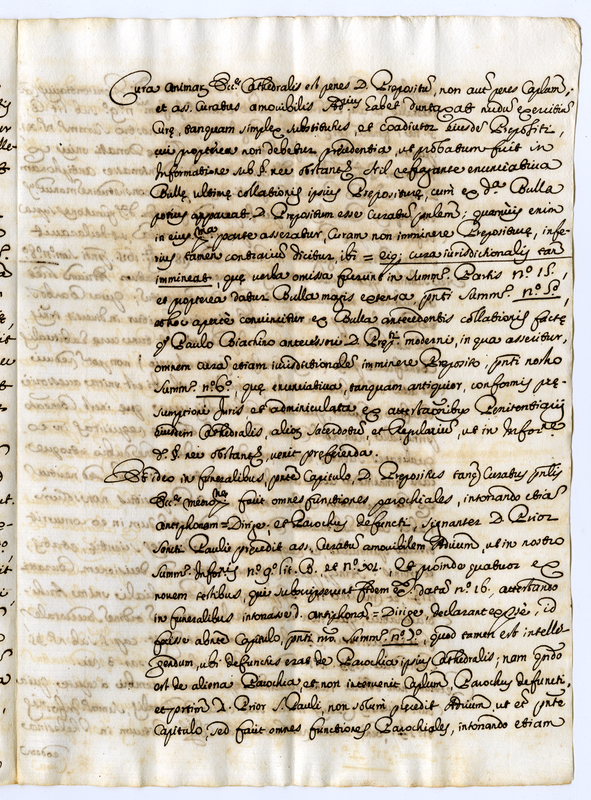 Cura animar Eccae Cathedralis est penes D. Prepositu, non aut penes Caplum;
et ass. Curatus amovibilis habet duntaxat nudu exercitiu
Curę, tanquam simplex substitutus, et coadiutor eiusdē Prepositi,
cui propterea non debetur precedentia, ut probatum fuit in
Informatione sub §. nec obstant. Nil refragante enunciativa
Bullę ultimę collationis ipsius Prepositurę, cum ex d.a Bulla
potius appareat, D. Prepositum esse Curatum pnlem; quamvis enim
in eius parte asseratur, Curam non imminere Prepositurę, infe-
rius tamen contrarium dicitur ibi = eiq; cura iurisdictionalis tan
immineat, quę verba omissa fuerunt in Summ. Partis n.o 15.,
et propterea datur Bulla magis extensa pnti Summ. n.o 5.o,
et hoc apertè convincitur ex Bulla antecedentis collationis factę
Paulo Biachino antecessori D. Prepti moderni, in qua asseritur,
omnem curam etiam iurisdictionalem imminere Preposito, pnti nostro
Summ. n.o 6.o, quę enunciativa, tanquam antiquior, conformis prę-
sumptioni Juris et adminiculata ex attestationibus Penitentiarij
eiusdem Cathedralis, alior Sacerdotum, et Regularium, ut in Inform.e
d.o §. nec obstant. venit preferenda.
Et ideo in funeralibus, pnte Capitulo, D. Prepositus tanq Curatus pnlis
Eccae facit omnes functiones parochiales, intonando etiam
antiphonam = Dirige, et Parochus defuncti, signanter D. Prior
Sancti Pauli pręcedit ass. Curatum amovibilem, ut in nostro
Summ. n.o 9.o lit. B. et Et proinde quatuor ex
novem testibus, qui subscripserunt fidem datam n.o 16. attestando
in funeralibus intonasse d. antiphonā = Dirige, declarant, id
fuisse absnte Capitulo, pnti nro Summ. n.o 7.o, quod tamen est intelli-
gendum, ubi defunctus erat de Parochia ipsius Cathedralis; nam qndo
est de aliena Parochia, et non intervenit Caplum, Parochus defuncti,
et D. Prior S. Pauli, non solum pręcedit, ut et pnte
Capitulo, sed facit omnes functiones Parochiales, intonando etiam